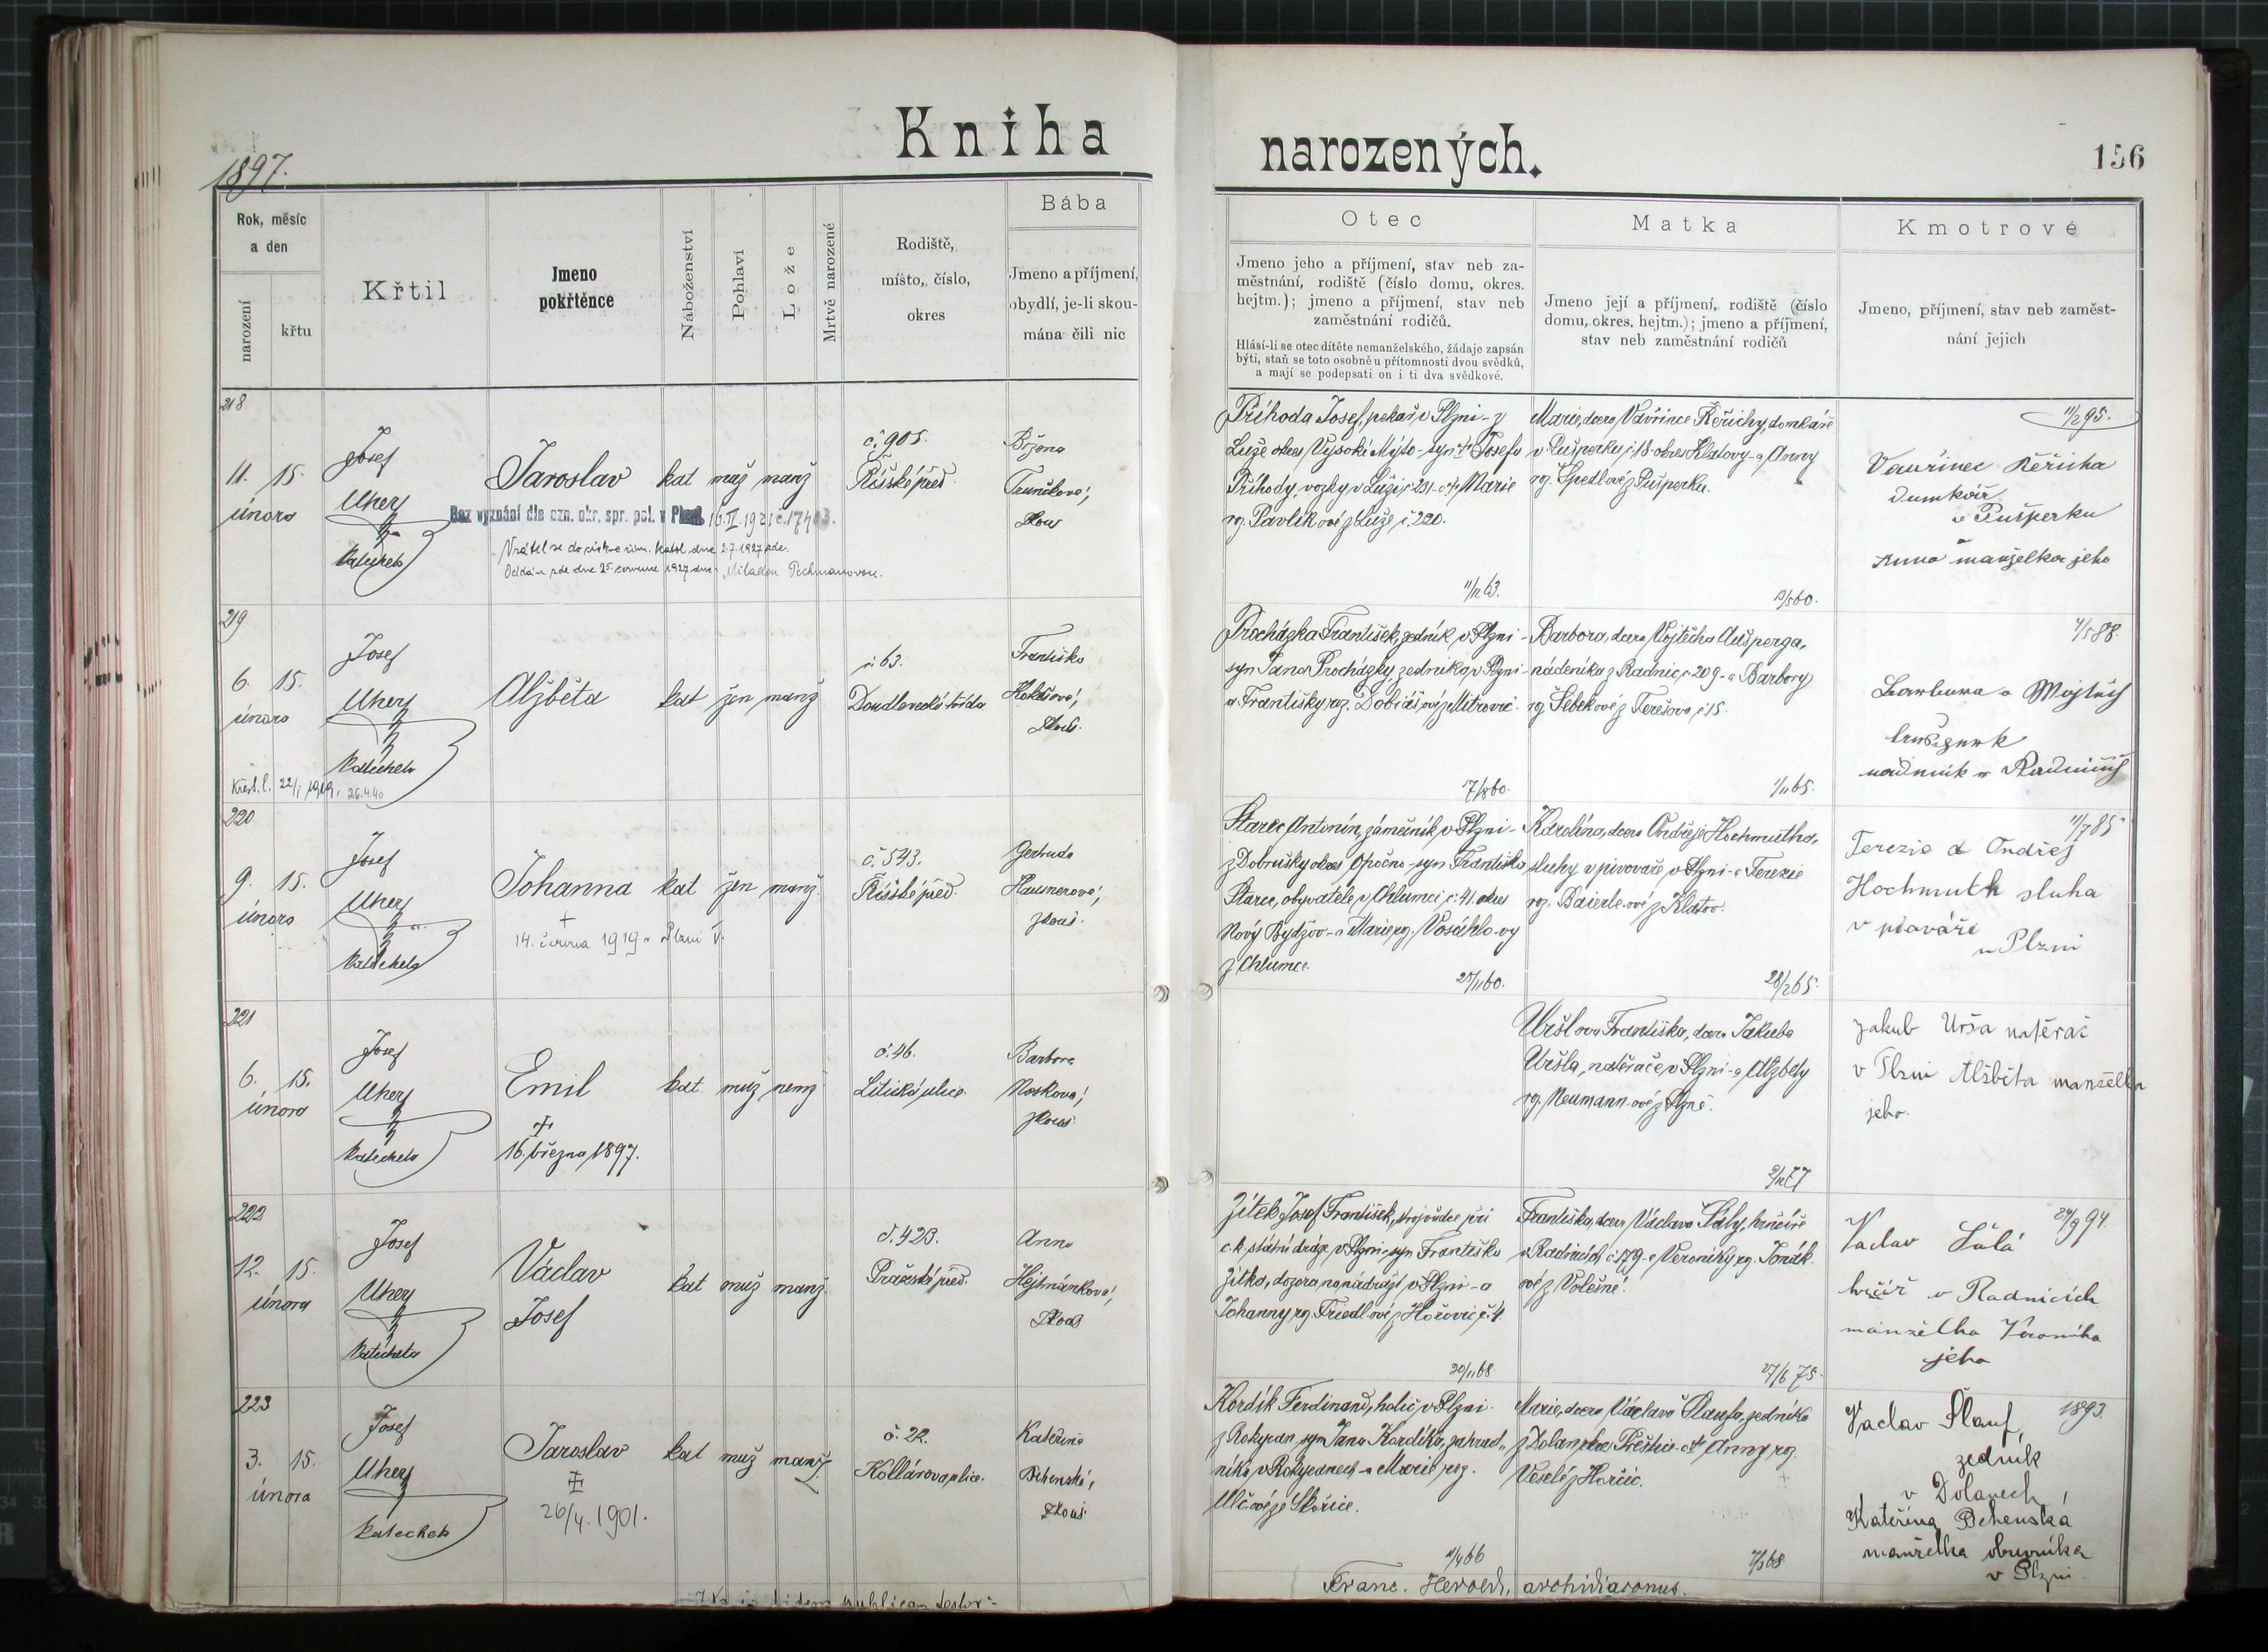 Kniha narozených.
1897.
156
Rok, měsíc
a den
narození
křtu
Křtil
Jmeno
pokřtěnce
Náboženství
Pohlaví
Lože
Mrtvě narozené
Rodiště,
místo, číslo,
okres
Bába
Jmeno a příjmení,
obydlí, je-li skou-
mána čili nic
Otec
Jmeno jeho a příjmení, stav neb za-
městnání, rodiště (číslo domu, okres.
hejtm.); jmeno a příjmení, stav neb
zaměstnání rodičů.
Hlásí-li se otec dítěte nemanželského, žádaje zapsán
býti, staň se toto osobně u přítomnosti dvou svědků,
a mají se podepsati on i ti dva svědkové.
Matka
Jmeno její a příjmení, rodiště (číslo
domu, okres. hejtm.); jmeno a příjmení,
stav neb zaměstnání rodičů
Kmotrové
Jmeno, příjmení, stav neb zaměst-
nání jejich
218
11. 15.
února
Josef
Uher
katecheta
Jaroslav
kat muž manž
č. 905.
Říšské před.
Božena
zkouš
Bez vyznání dle ozn. okr. spr. pol. v Plzni 16.II.1921 č. 17403.
Vrátil se do církve řím. katol. dne 2.7.1927 zde.
Oddán zde dne 25. července 1927 s Miladou Pechmanovou.
Příhoda Josef, pekař v Plzni - z
Luže okres Vysoké Mýto - syn † Josefa
Příhody, vozky v Luži č. 231 - a † Marie
roz. Pavlíkové z Luže č. 220.
11/12 63.
Marie, dcera Vavřince Řeřichy, domkáře
v Pušperku č. 18 okres Klatovy - a Anny
roz. Špedlové z Pušperku.
11/2 95.
Vavřinec Řeřicha
Domkář
v Pušperku
Anna manželka jeho
219
6. 15.
února
Josef
Uher
katecheta
Alžběta
kat žen manž
č. 63.
Doudlevecká třída
Františka
zkouš.
Křest. l. 22/1 1919, 26.4.40
Procházka František, zedník v Plzni -
syn Jana Procházky, zedníka v Plzni -
a Františky roz. Dobiášové z Mitrovic.
17/8 60.
Barbora, dcera Vojtěcha Aušperga,
nádeníka z Radnic č. 209 - a Barbory
roz. Šebekové z Terešova č. 15.
1/11 65.
4/5 88.
Barbora a Wojtěch
220
9. 15.
února
Josef
Uher
katecheta
Johanna
kat žen manž.
č. 543.
Říšské před.
Gertruda
Hausnerová,
zkouš.
+
14. června 1919 v Plzni V.
Starec Antonín, zámečník v Plzni -
z Dobrušky okres Opočno - syn Františka
Starce, obyvatele v Chlumci č. 41 okres
Nový Bydžov - a Marie roz. Vosáhlo-vy
z Chlumce.
25/11 60.
Karolína, dcera Ondřeje Hochmutha,
sluhy v pivovaře v Plzni - a Terezie
roz. Baierle-ové z Klatov.
28/2 65.
11/7 85
Terezie a Ondřej
Hochmuth sluha
v pivováře
v Plzni
221
6. 15.
února
Josef
Uher
katecheta
Emil
kat muž nemž
č. 46.
Litická ulice.
Barbora
Nosková,
zkouš.
+
16. března 1897.
Uršlova Františka, dcera Jakuba
Uršla, natěrače v Plzni - a Alžběty
roz. Neumann-ové z Plzně.
Jakub Urša natěrač
v Plzni Alžběta manželka
jeho.
222
12. 15.
února
Josef
Uher
katecheta
Václav
Josef
kat muž manž
č. 423.
Pražské před.
Anna
Hejtmánková,
zkouš
Zítek Josef František, strojvůdce při
c.k. státní dráze v Plzni - syn Františka
Zítka, dozorce na nádraží v Plzni - a
Johanny roz. Friedl-ové z Hořovic č. 4.
20/11 68
Františka, dcera Václava Šály, hrnčíře
v Radnicích č. 179 - a Veroniky roz. Jonák-
ové z Volešné.
27/6 75.
24/9 94.
Vaclav Šálá
hrčíř v Radnicích
manželka Veronika
jeho
223
3. 15.
února
Josef
Uher
katecheta
Jaroslav
kat muž manž.
č. 22.
Kollárova ulice.
Kateřina
Bthenská,
zkouš
‡
26/4. 1901.
Kordík Ferdinand, holič v Plzni -
z Rokycan, syn Jana Kordíka, zahrad-
níka v Rokycanech - a Marie roz.
Ulčové ze Skořice.
4/4 66
Marie, dcera Václava Šlaufa, zedníka
z Dolan, okres Přeštice - a † Anny roz.
Veselé z Horčic.
7/3 68
1893.
Vaclav Šlauf,
zedník
v Dolanech,
Kateřina Bthenská
manželka obuvníka
v Plzni
Franc. Herold, archidiaconus.